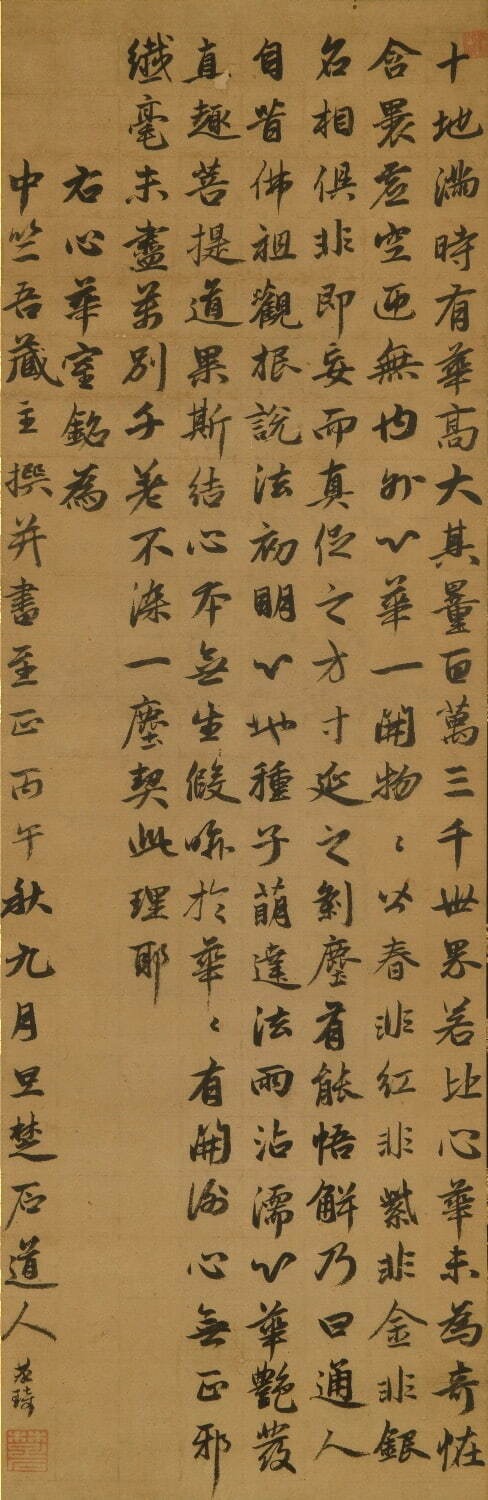 十地滿時有華高大其量百萬三千世界若比心華未為奇恠
含裹虛空匝無內外心華一開物〻皆春非紅非紫非金非銀
名相俱非即妄而真促之方寸延之剎塵有能悟解乃曰通人
自昔佛祖觀根說法初明心地種子萌達法雨沾濡心華艷發
直趣菩提道果斯結心本無生假喻於華〻有開謝心無正邪
纖毫未盡萬別千差不染一塵契此理耶
右心華室銘為
中竺吾藏主撰并書至正丙午秋九月旦楚石道人梵琦